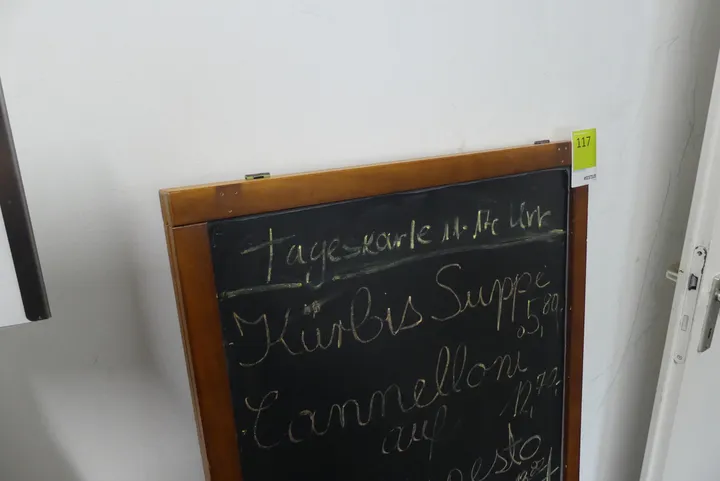 117
Tageskarte 11-17 Uhr
Kürbis Suppe
5,80,-
Cannelloni
auf 12,70,-